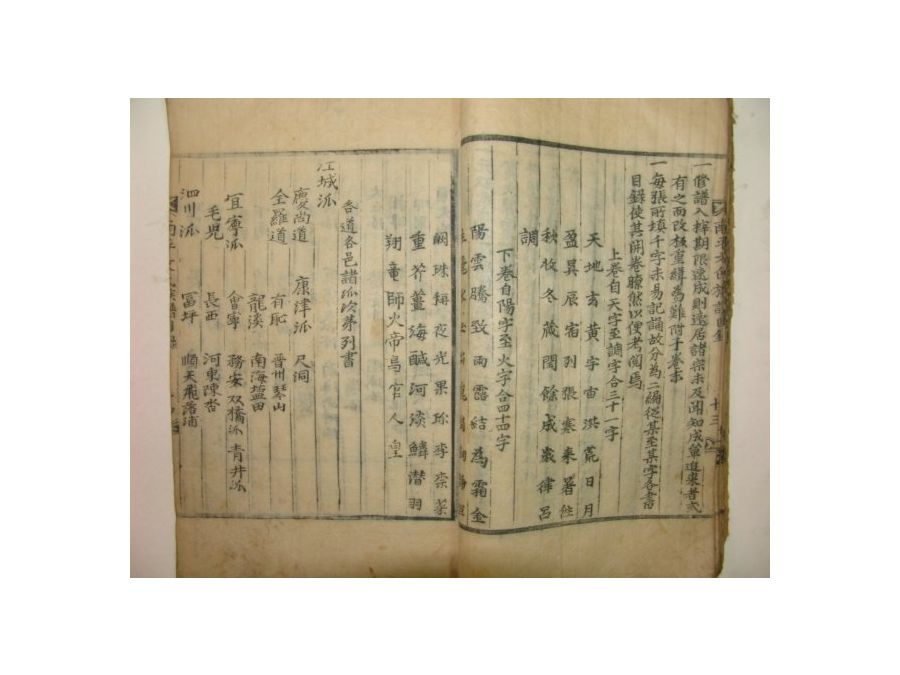 一修譜入梓期限速成則遠居諸宗未及聞知成單追來者或
有之而改板重繕爲難附于卷末
一每張所塡千字未易記誦故分爲二編從某至某字各書
目錄使其開卷瞭然以便考閱焉
上卷自天字至調字合三十一字
天地玄黃宇宙洪荒日月
盈昃辰宿列張寒來暑徃
秋收冬藏閏餘成歲律呂
調
下卷自陽字至火字合四十四字
陽雲騰致雨露結爲霜金
闕珠稱夜光果珎李柰菜
重芥薑海鹹河淡鱗潛羽
翔龍師火帝鳥官人皇
各道各邑諸派次第列書
江城派
慶尙道 康津派 尺洞
全羅道 有恥 晉州琴山
龍淡 南海塩田
宜寧派 會寧 務安双橋派 青井派
毛兒 長西 河東陳沓
泗川派 冨坪 順天飛落浦